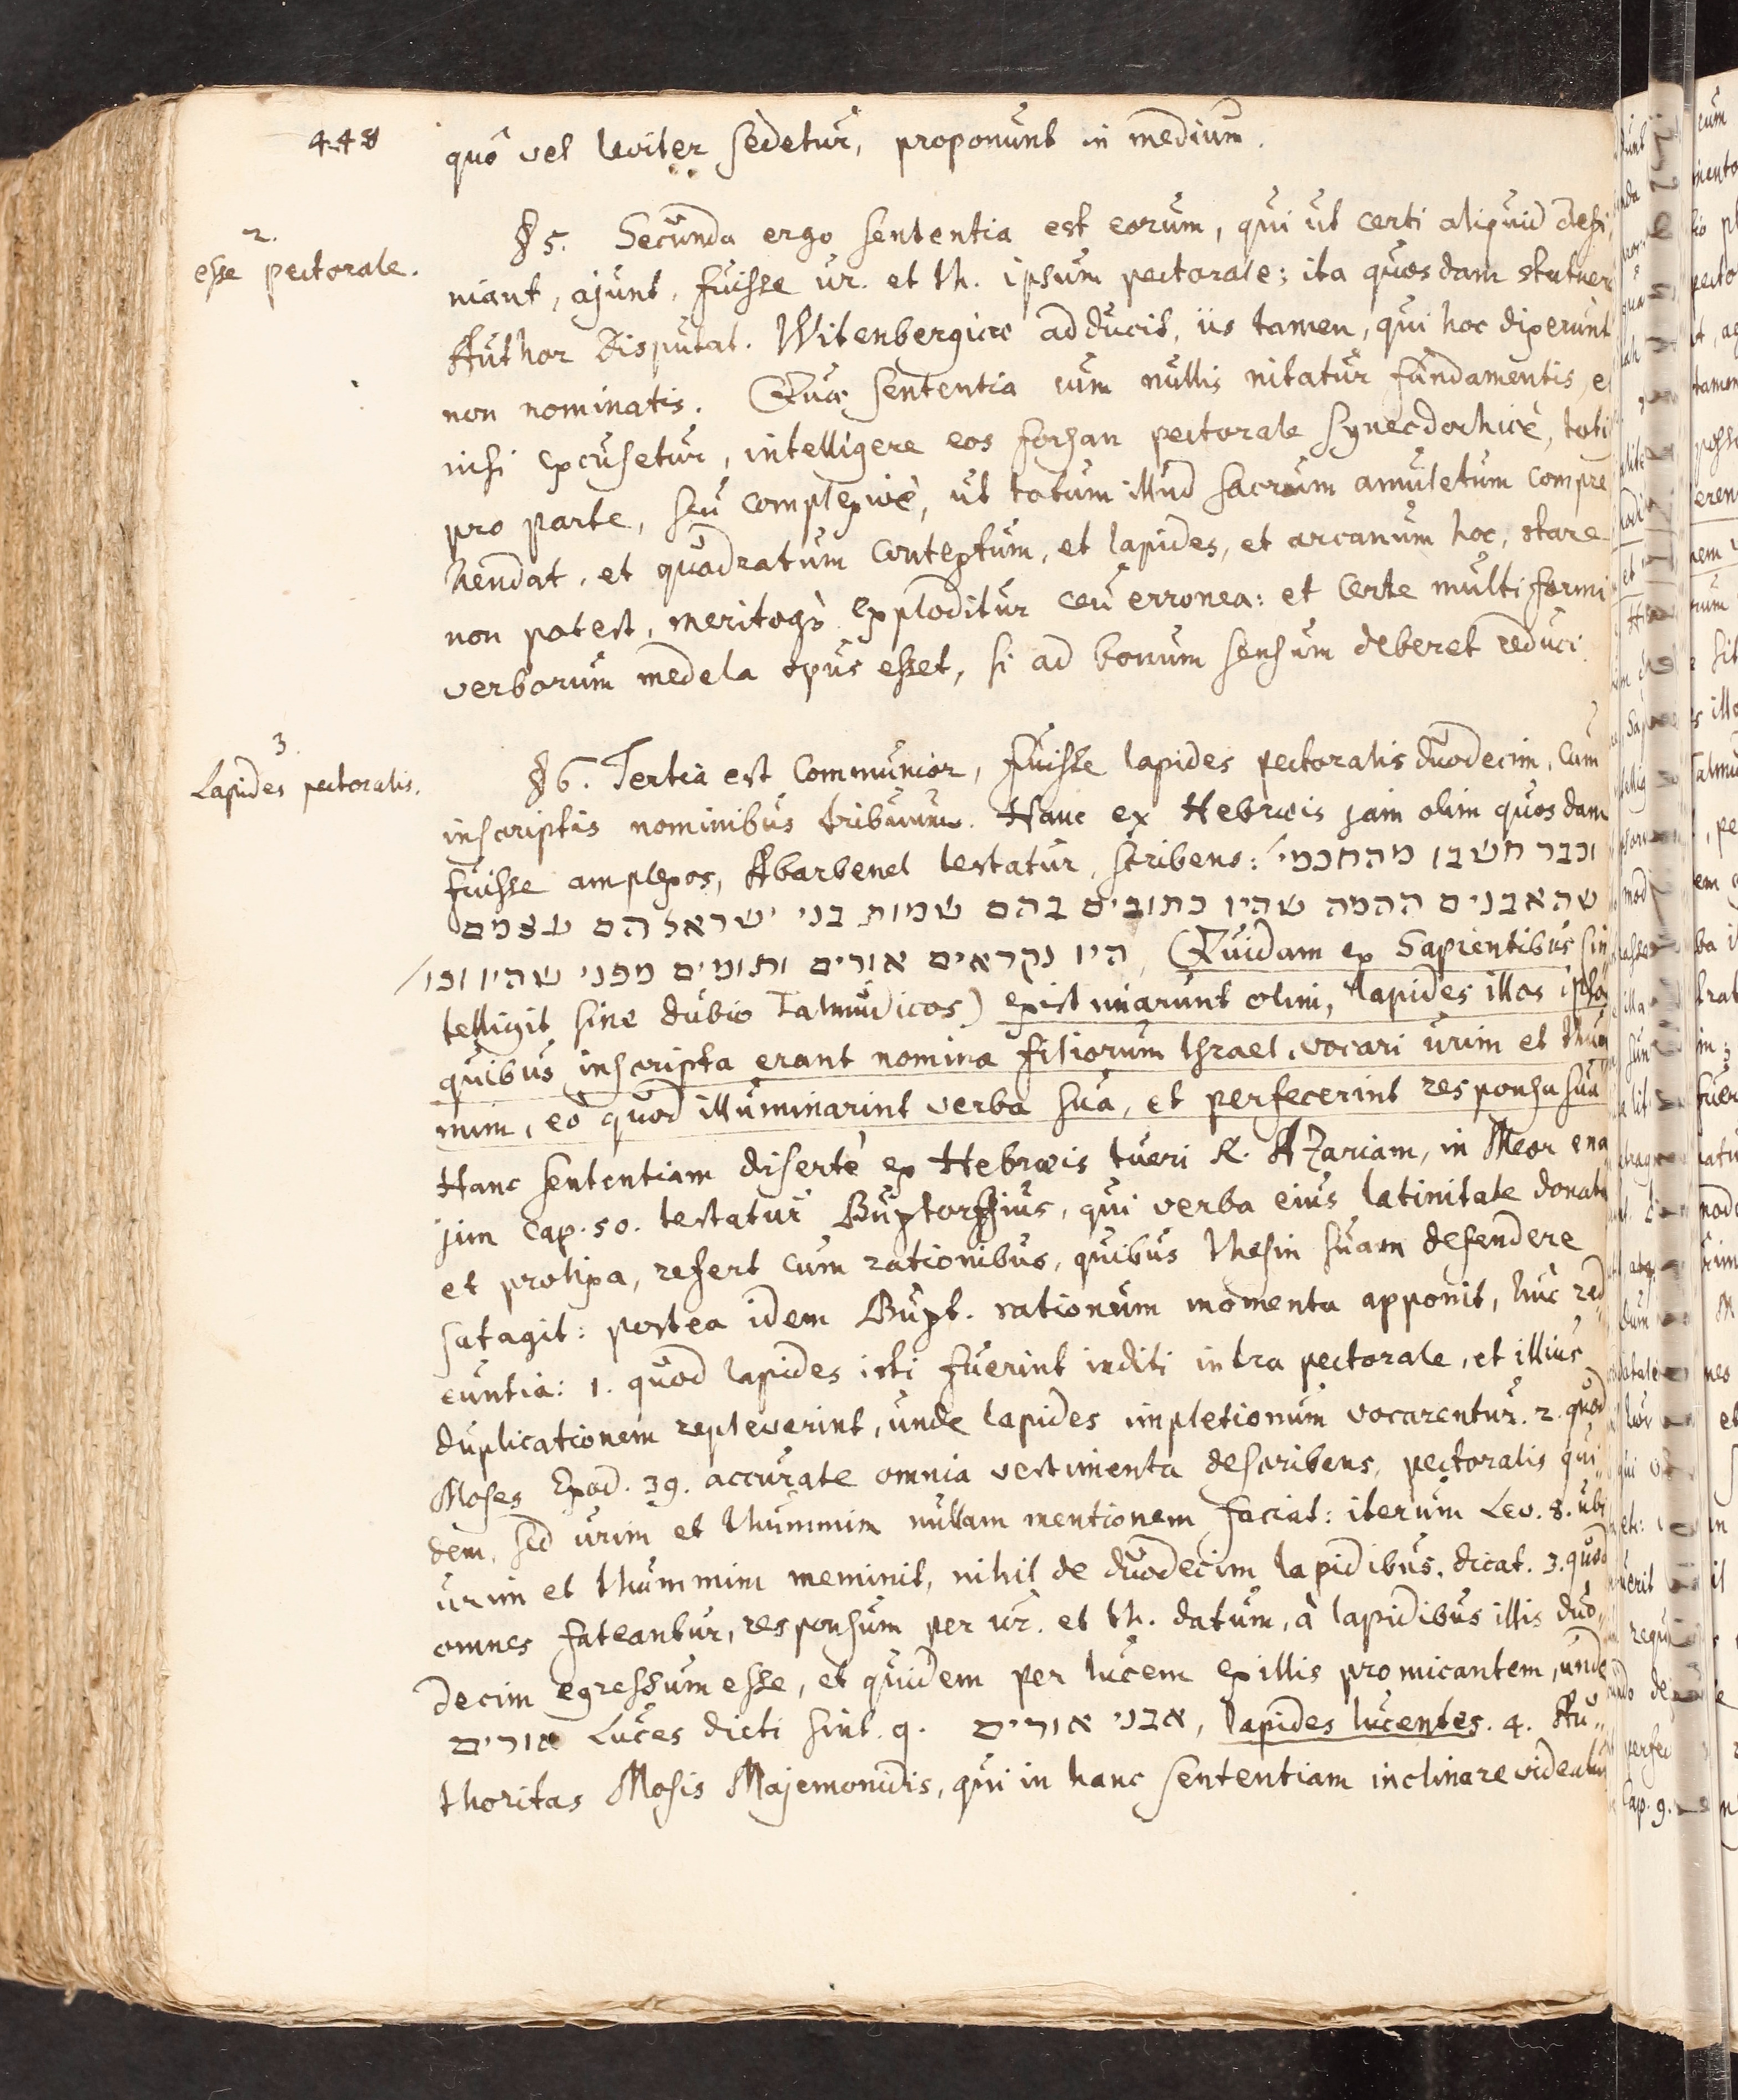 448
quô vel leviter sedetur, proponunt in medium.
2.
esse pectorale.
§ 5. Secunda ergo sententia est eorum, qui ut certi aliquid defi
niant, ajunt, fuisse ur. et th. ipsum pectorale: ita quosdam statuer
Author Disputat. Witenbergicæ adducit, iis tamen, qui hoc dixerunt
non nominatis. Quæ sententia cum nullis nitatur fundamentis, e
nisi excusetur, intelligere eos forsan pectorale synecdochicè, toti
pro parte, seu complexivè, ut totum illud sacrum amuletum compre
hendat, et quadratum contextum, et lapides, et arcanum hoc, stare
non potest, meritoq; exploditur ceu erronea: et certe multiformi
verborum medela opus esset, si ad bonum sensum deberet reduci.
3.
Lapides pectoralis.
§ 6. Tertia est communior, fuisse lapides pectoralis duodecim, cum
inscriptis nominibus tribuum. Hanc ex Hebræis jam olim quosdam
fuisse amplexos, Abarbenel testatur, scribens: וכבר חשבו מהחכמי׳
שהאבנים ההמה שהיו כתובים בהם שמות בני ישראל הם עצמם
היו נקראים אורים ותומים מפני שהיו וכו׳, Quidam ex Sapientibus (in
telligit sine dubio Talmudicos) existimarunt olim, lapides illos ipsos
quibus inscripta erant nomina filiorum Israel, vocari urim et thum
mim, eò quod illuminarint verba sua, et perfecerint responsa sua
Hanc sententiam disertè ex Hebræis tueri R. Azariam, in Meor ena
jim cap. 50. testatur Buxtorfius, qui verba eius latinitate donata
et prolixa, refert cum rationibus, quibus thesin suam defendere
satagit: postea idem Buxt. rationum momenta apponit, huc red
euntia: 1. quod lapides isti fuerint inditi intra pectorale, et illius
duplicationem repleverint, unde lapides impletionum vocarentur. 2. quod
Moses Exod. 39. accurate omnia vestimenta describens, pectoralis qui
dem, sed urim et thummim nullam mentionem faciat: iterum Lev. 8. ubi
urim et thummim meminit, nihil de duodecim lapidibus, dicat. 3. quod
omnes fateantur, responsum per ur. et th. datum, à lapidibus illis duo
decim egressum esse, et quidem per lucem ex illis promicantem, unde
אורים Luces dicti sint. q. אבני אורים, lapides lucentes. 4. Au
thoritas Mosis Majemonidis, qui in hanc sententiam inclinare videatur